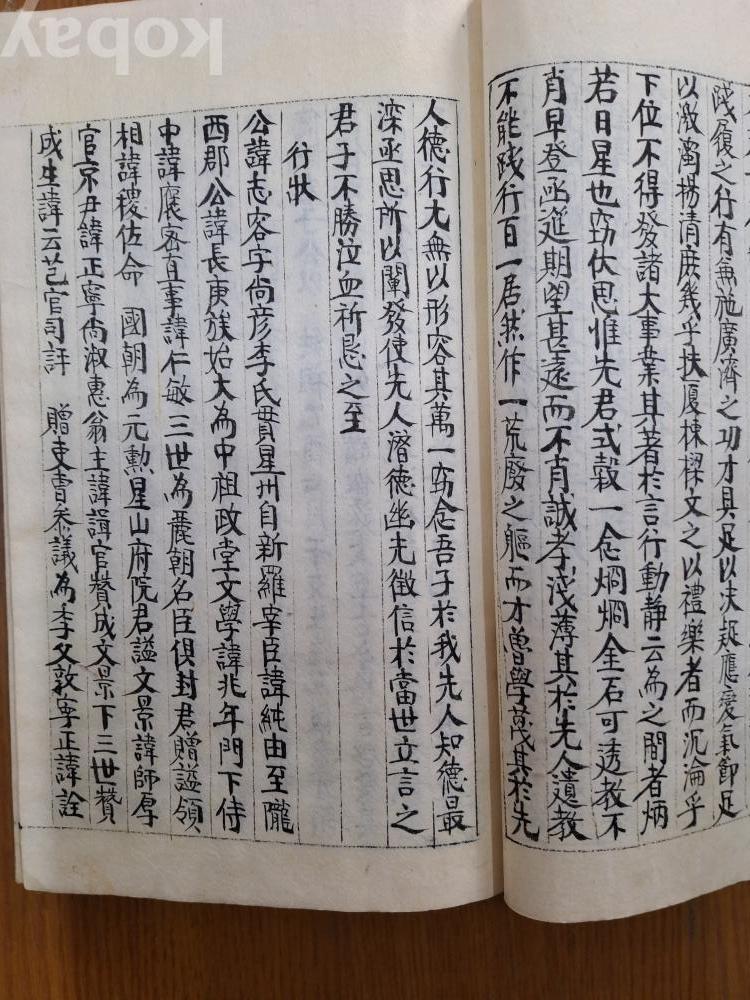 踐履之行有無施廣濟之功才具足以决疑應變氣節足
以激濁揚清庶幾乎扶廈棟樑文之以禮樂者而沉淪乎
下位不得發諸大事業其著於言行動靜云為之間者炳
若日星也窃伏思惟先君式穀一念炯炯金石可透教不
肖早登函筵期望甚遠而不肖誠孝淺薄其於先人遺教
不能踐行百一居然作一荒廢之軀而才魯學蔑其於先
人德行尤無以形容其萬一窃念吾子於我先人知德最
深亟思所以闡發使先人潛德幽光徵信於當世立言之
君子不勝泣血祈懇之至
行狀
公諱志容字尙彦李氏貫星州自新羅宰臣諱純由至隴
西郡公諱長庚族始大為中祖政堂文學諱兆年門下侍
中諱褒密直事諱仁敏三世為麗朝名臣俱封君贈謚領
相諱稷佐命 國朝為元勳星山府院君謚文景諱師厚
官京尹諱正寧尙淑惠翁主諱諿官贊成文景下三世贊
成生諱云芑官司評 贈吏曹參議為季父敦寧正諱詮
kobay